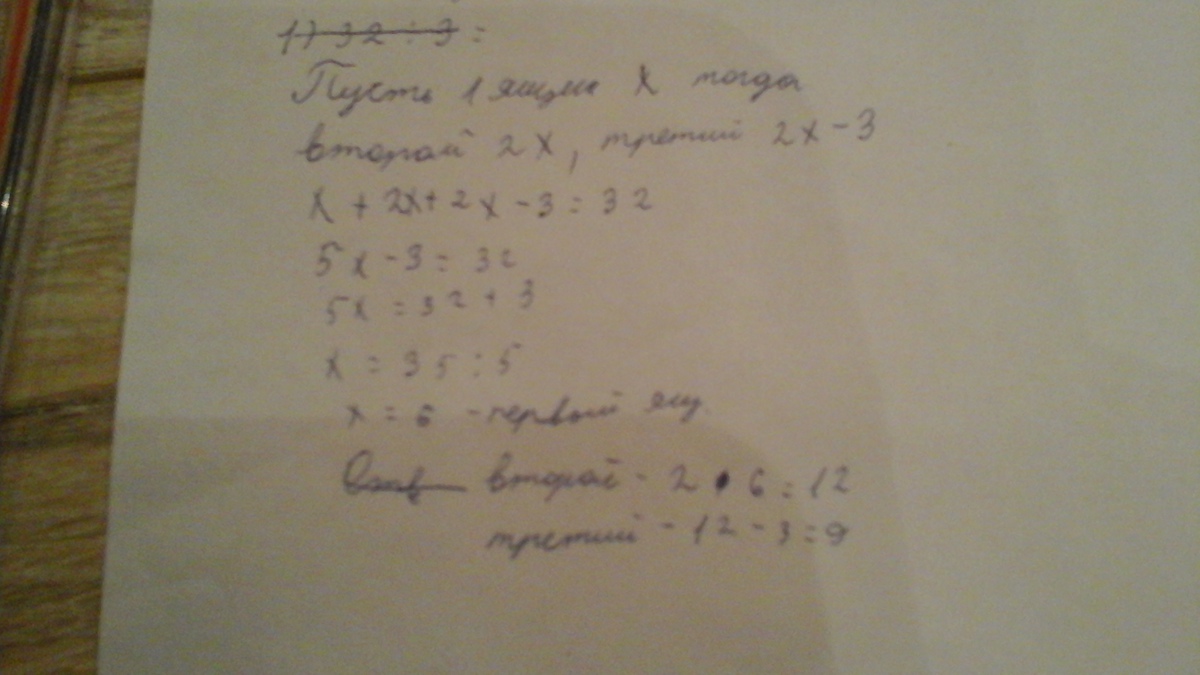 1) 32 : 3 =
Пусть 1 ящик X тогда
второй 2X, третий 2X-3
X + 2X + 2X - 3 = 32
5X - 3 = 32
5X = 32 + 3
X = 35 : 5
X = 6 - первый ящ.
Отв второй - 2 • 6 = 12
третий - 12 - 3 = 9